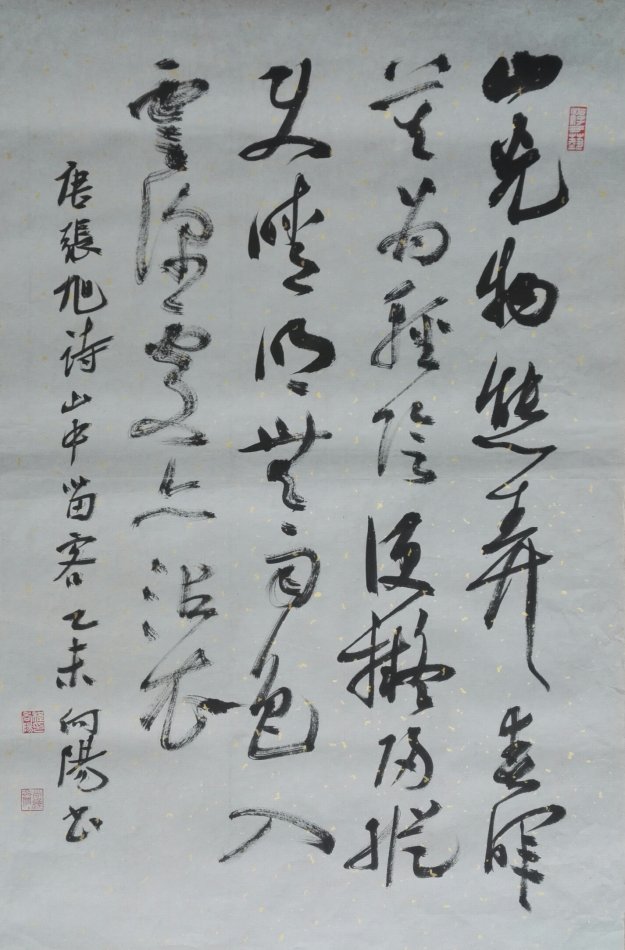 山光物態弄春暉
莫為輕陰便擬歸縱
使晴明無雨色入
雲深處亦沾衣
唐張旭诗山中留客乙未向陽书